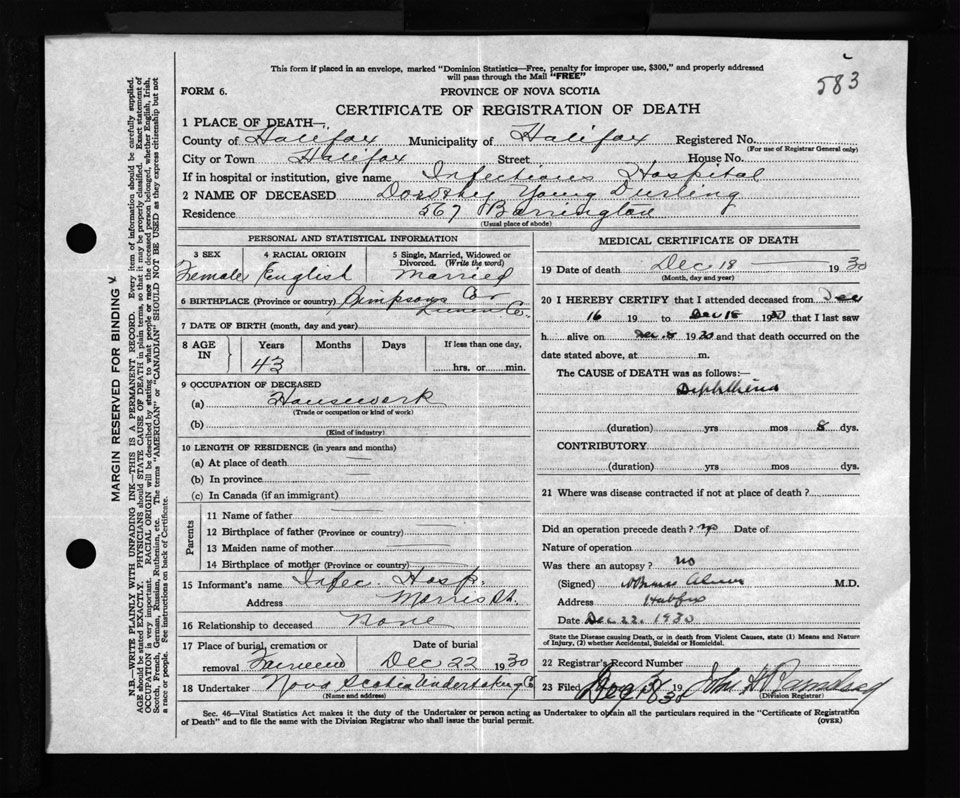 583
This form if placed in an envelope, marked "Dominion Statistics—Free, penalty for improper use, $300," and properly addressed
will pass through the Mail "FREE"
FORM 6.
PROVINCE OF NOVA SCOTIA
CERTIFICATE OF REGISTRATION OF DEATH
1 PLACE OF DEATH—
County of Halifax Municipality of Halifax Registered No.
(For use of Registrar General only)
City or Town Halifax Street House No.
If in hospital or institution, give name Infectious Hospital
2 NAME OF DECEASED Dorothy Young Durling
Residence 567 Barrington
(Usual place of abode)
PERSONAL AND STATISTICAL INFORMATION
3 SEX 4 RACIAL ORIGIN 5 Single, Married, Widowed or Divorced. (Write the word)
Female English Married
6 BIRTHPLACE (Province or country) Simpsons Co.
Lunen Co.
7 DATE OF BIRTH (month, day and year)
8 AGE IN Years Months Days If less than one day,
43 hrs. or min.
9 OCCUPATION OF DECEASED
(a) Housework
(Trade or occupation or kind of work)
(b)
(Kind of industry)
10 LENGTH OF RESIDENCE (in years and months)
(a) At place of death
(b) In province
(c) In Canada (if an immigrant)
Parents
11 Name of father
12 Birthplace of father (Province or country)
13 Maiden name of mother
14 Birthplace of mother (Province or country)
15 Informant's name Infec. Hosp.
Address Morris St.
16 Relationship to deceased None
17 Place of burial, cremation or Date of burial
removal Fairview Dec 22 1930
18 Undertaker Nova Scotia Undertaking Co
(Name and address)
MEDICAL CERTIFICATE OF DEATH
19 Date of death Dec 18 1930
(Month, day and year)
20 I HEREBY CERTIFY that I attended deceased from Dec
16 19 to Dec 18 1930 that I last saw
h alive on Dec 1930 and that death occurred on the
date stated above, at m.
The CAUSE of DEATH was as follows:—
Diphtheria
(duration) yrs mos 8 dys.
CONTRIBUTORY
(duration) yrs mos dys.
21 Where was disease contracted if not at place of death?
Did an operation precede death? no Date of
Nature of operation
Was there an autopsy? no
(Signed) M.D.
Address Halifax
Date Dec 22. 1930
State the Disease causing Death, or in death from Violent Causes, state (1) Means and Nature
of Injury, (2) whether Accidental, Suicidal or Homicidal.
22 Registrar's Record Number
23 Filed 19 John H
(Division Registrar)
Sec. 46—Vital Statistics Act makes it the duty of the Undertaker or person acting as Undertaker to obtain all the particulars required in the "Certificate of Registration
of Death" and to file the same with the Division Registrar who shall issue the burial permit. (OVER)
MARGIN RESERVED FOR BINDING
N.B.—WRITE PLAINLY WITH UNFADING INK—THIS IS A PERMANENT RECORD. Every item of information should be carefully supplied.
AGE should be stated EXACTLY. PHYSICIANS should STATE CAUSE OF DEATH in plain terms, so that it may be properly classified. Exact statement of
OCCUPATION is very important. RACIAL ORIGIN will be described by stating to what people or race the deceased person belonged, whether English, Irish,
Scotch, French, German, Russian, Ruthenian, etc. The terms "AMERICAN" or "CANADIAN" SHOULD NOT BE USED as they express citizenship but not
a race or people. See instructions on back of Certificate.